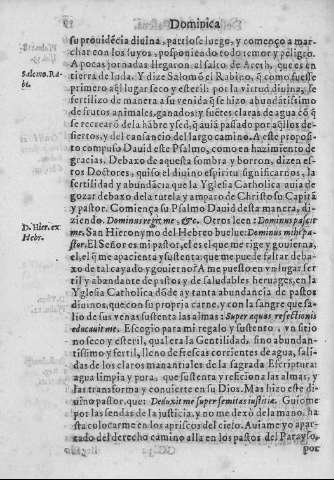 Dominica
su prouidẽcia diuina, partiose luego, y começo a mar-
char con los suyos, posponiendo todo temor y peligro.
A pocas jornadas llegaron al salto de Areth, que es en
Salomo. Ra-
bi.
tierra de Iuda. Y dize Salomõ el Rabino, q̃ como fuesse
primero aq̃l lugar seco y esteril: por la virtud diuina, se
fertilizo de manera a su venida q̃ se hizo abundãtissimo
de frutos animales, ganados: y fuẽtes claras de agua cõ q̃
se recrearõ de la hãbre y sed, q̃ auiã passado por aq̃llos de-
siertos, y del cansancio del largo camino. A este proposi-
to compuso Dauid este Psalmo, como en hazimiento de
gracias. Debaxo de aquesta sombra y borron, dizen es-
tos Doctores, quiso el diuino espiritu significarnos, la
fertilidad y abundãcia que la Yglesia Catholica auia de
gozar debaxo dela tutela y amparo de Christo su Capitã
y pastor. Comiença su Psalmo Dauid desta manera, di-
ziendo. Dominus regit me, &c. Otros leen: Dominus pascit
D. Hier. ex
Hebr.
me. San Hieronymo del Hebreo buelue: Dominus mihi pas-
tor. El Señor es mi pastor, el es el que me rige y gouierna,
el, el q̃ me apacienta y sustenta: que me puede faltar deba-
xo de tal cayado y gouierno? A me puesto en vn lugar fer-
til y abundante de pastos y de saludables heruages, en la
Yglesia Catholica dõde ay tanta abundancia de pastos
diuinos, que con su propria carne, y con la sangre que sa-
lio de sus venas sustenta las almas: Super aquas refectionis
educauit me. Escogio para mi regalo y sustento, vn sitio
no seco y esteril, qual era la Gentilidad, sino abundan-
tissimo y fertil, lleno de frescas corrientes de agua, sali-
das de los claros manantiales de la sagrada Escriptura:
agua limpia y pura, que sustenta y refeciona las almas, y
las transforma y conuierte en su Dios. Mas hizo este di-
uino pastor, que: Deduxit me super semitas iustitiæ. Guiome
por las sendas de la justicia, y no me dexò de la mano, ha
sta colocarme en los apriscos del cielo. Auiame yo apar-
tado del derecho camino alla en los pastos del Parayso,
por